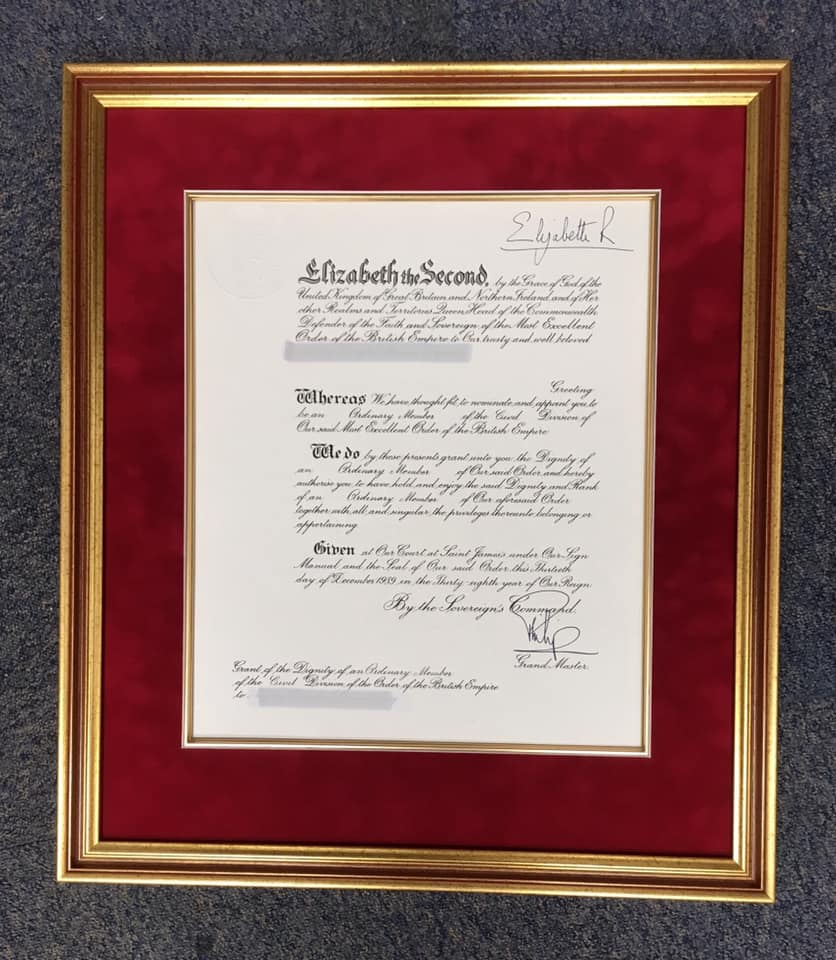 Elizabeth R
Elizabeth the Second, by the Grace of God of the
United Kingdom of Great Britain and Northern Ireland and of Her
other Realms and Territories Queen, Head of the Commonwealth,
Defender of the Faith and Sovereign of the Most Excellent
Order of the British Empire to Our trusty and well beloved
Greeting
Whereas We have thought fit to nominate and appoint you to
be an Ordinary Member of the Civil Division of
Our said Most Excellent Order of the British Empire
We do by these presents grant unto you the Dignity of
an Ordinary Member of Our said Order and hereby
authorise you to have hold and enjoy the said Dignity and Rank
of an Ordinary Member of Our aforesaid Order
together with all and singular the privileges thereunto belonging or
appertaining.
Given at Our Court at Saint James's under Our Sign
Manual and the Seal of Our said Order this Thirtieth
day of December 1989 in the Thirty-eighth year of Our Reign
By the Sovereign's Command.
Philip
Grand Master.
Grant of the Dignity of an Ordinary Member
of the Civil Division of the Order of the British Empire
to